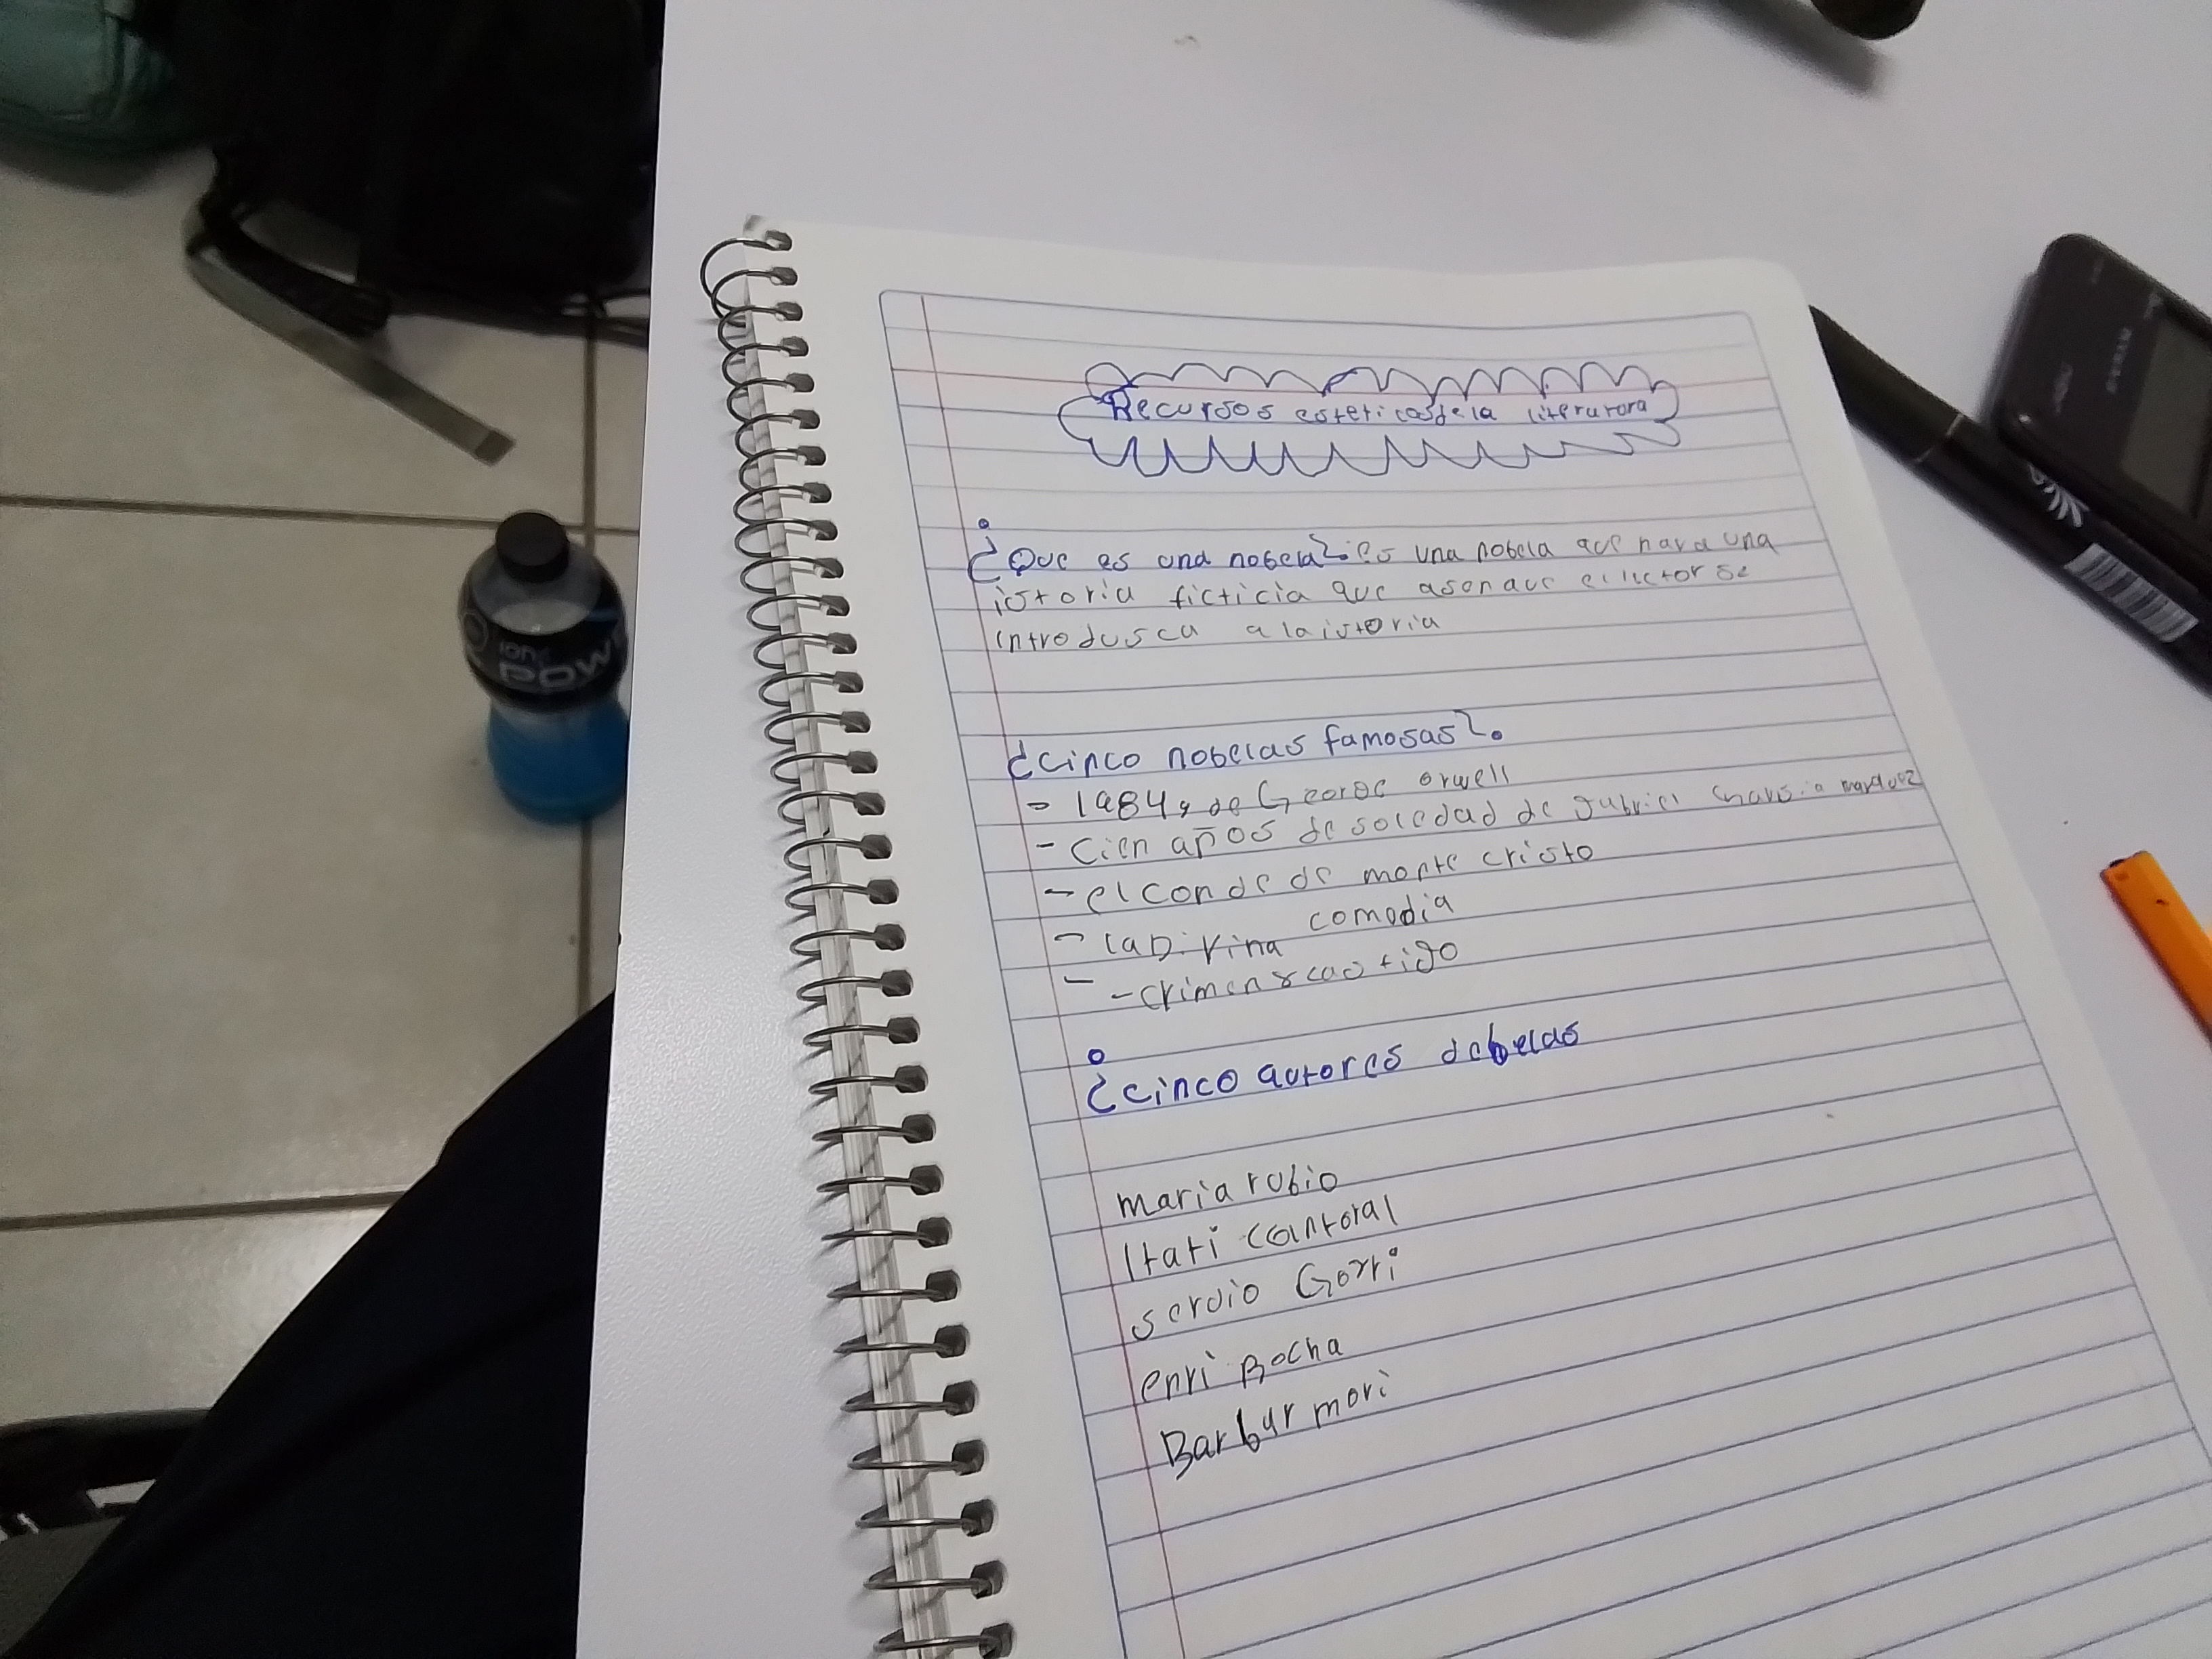 Recursos esteticas de la literatura
¿Que es una nobela?: es una nobela que nara una
istoria ficticia que asen que el lector se
introdusca a la istoria
¿cinco nobelas famosas?.
- 1984, de George orwell
- Cien años de soledad de gabriel marquez
- el conde de monte cristo
- la Divina comedia
- - crimen y castigo
¿cinco autores de belas
maria rubio
Itati cantoral
sergio Gorri
enri Rocha
Barbar mori
ION
POW